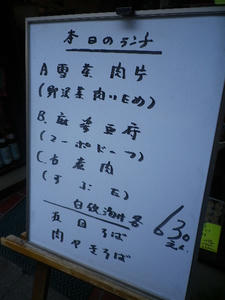 本日のランチ
A 雪菜肉片
(野沢菜肉いため)
B. 麻婆豆府
(マーボドーフ)
C. 古老肉
(すぶた)
各630
五目そば
肉やきそば